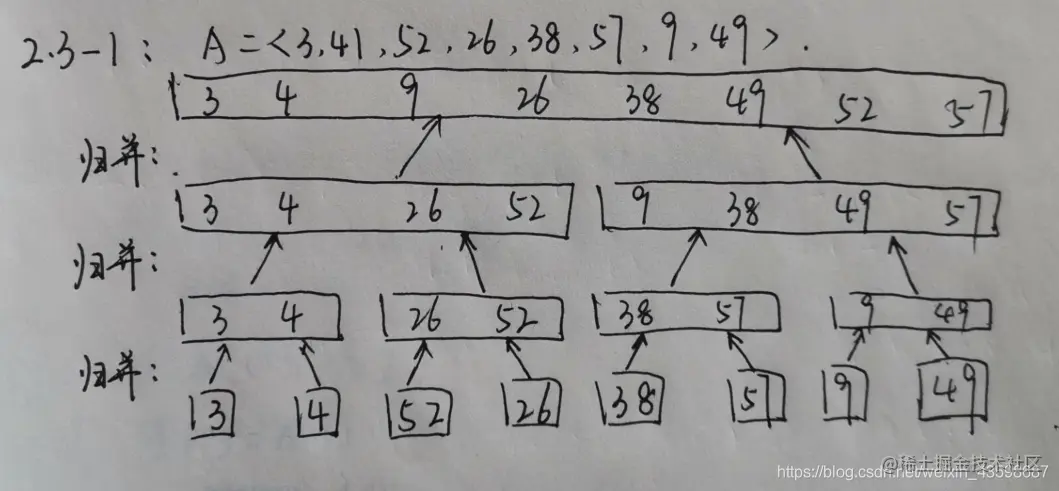 2.3-1: A=<3,41,52,26,38,57,9,49>.
3 4 9 26 38 49 52 57
归并:
3 4 26 52 9 38 49 57
归并:
3 4 26 52 38 57 9 49
归并:
3 4 52 26 38 57 9 49
@稀土掘金技术社区
https://blog.csdn.net/weixin_43598687